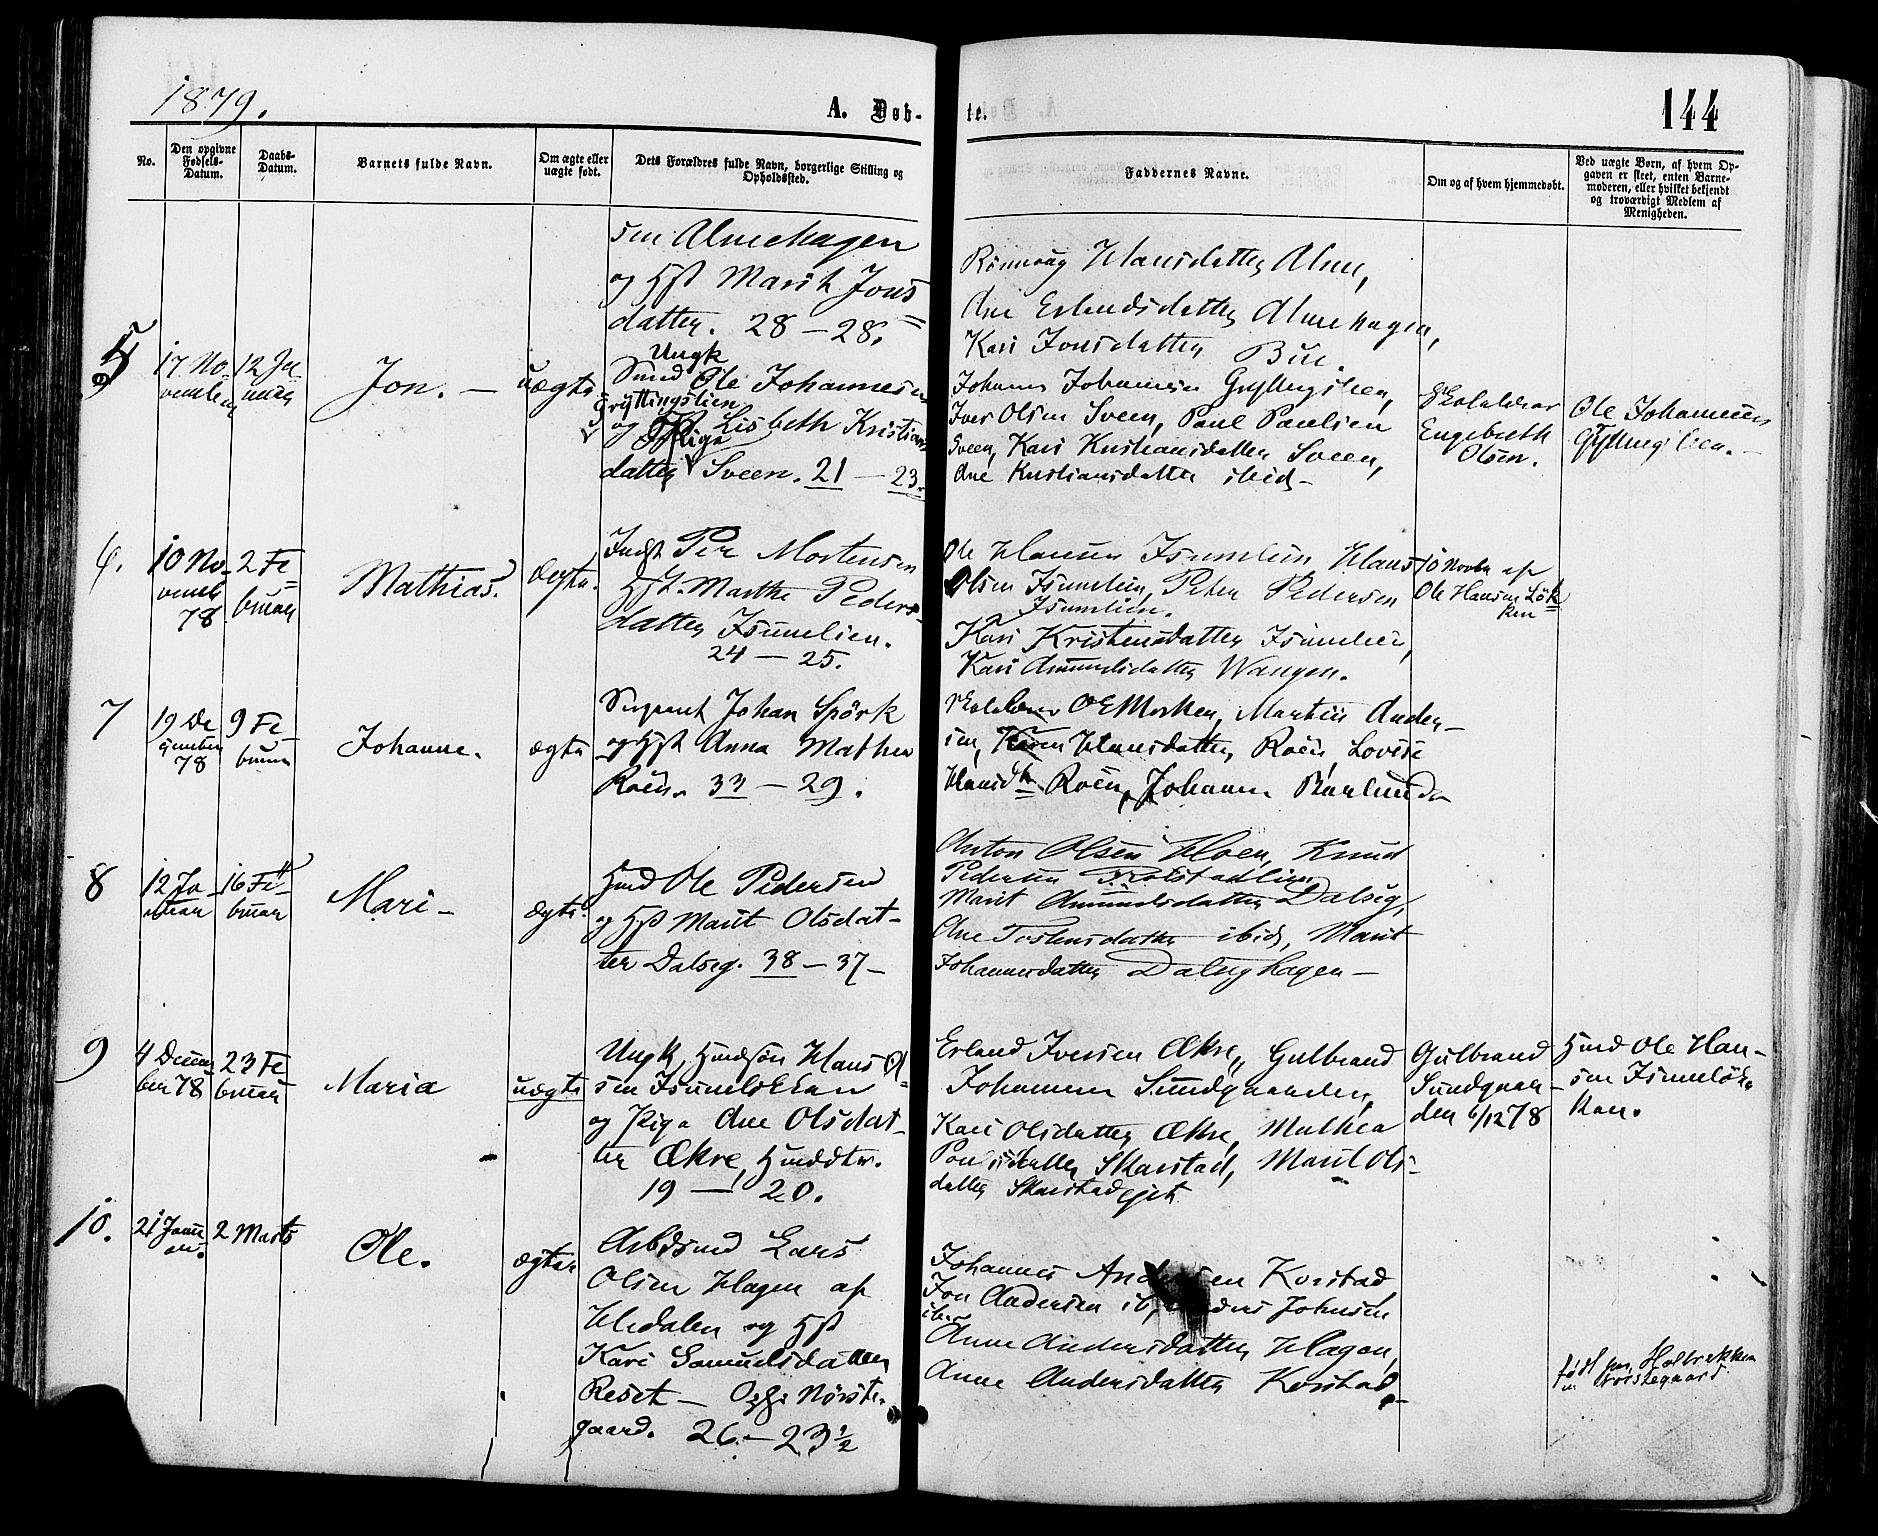 1879.
A. Døb-
te.
144
No.
Den opgivne
Fødsels-
Datum.
Daabs-
Datum.
Barnets fulde Navn.
Om ægte eller
uægte født.
Dets Forældres fulde Navn, borgerlige Stilling og
Opholdssted.
Faddernes Navne.
Om og af hvem hjemmedøbt.
Ved uægte Børn, af hvem Op-
gaven er skeet, enten Barne-
moderen, eller hvilket bekjendt
og troværdigt Medlem af
Menigheden.
sen Almehagen
og Hst Marit Jons=
datter. 28 – 28.
Rønnaug Hansdatter Alme,
Ane Erlendsdatter Almehagen,
Kari Jonsdatter Bue.
5
17 No-
vember
12 Ja
nuar
Jon. –
uægte
Ungk
Ole Johannesen
Gryttingslien
og Pige Lisbeth Kristians
datter Sveen. 21 – 23.
Johannes Johannesen Gryttingslien,
Iver Olsen Sveen, Paul Paulsen
Sveen, Kari Kristiansdatter Sveen,
Ane Kristiansdatter ibid –
Skolelærer
Engebreth
Olsen.
Ole Johannesen
Gryttingslien. –
6.
10 No-
vemb
78
2 Fe=
bruar
Mathias.
Ægte.
Indst Per Mortensen
Hst. Marthe Peders-
datter Isumlien.
24 – 25.
Ole Hansen Isumlien, Hans
Olsen Isumlien, Peter Pedersen
Isumlien.
Kari Kristensdatter Isumlien,
Kari Amundsdatter Wangen.
10 Novbr af
Ole Hansen Løk=
ken
7
19 De
cember
78
9 Fe-
bruar
Johanne.
ægte
Sergeant Johan Spörk
og Hst Anna Mathea
Roen. 33 – 29.
Skolelærer O E Morken, Martin Ander-
sen, Karen Hansdatter Roen, Lovise
Hansdtr Roen, Johannes
8
12 Ja-
nuar
16 Fe-
bruar
Mari –
ægte.
Hmd Ole Pedersen
og Hst Marit Olsdat-
ter Dalseg. 38 – 37 –
Anton Olsen Hoen, Knud
Pedersen
Marit Amundsdatter Dalseg,
Ane Tostensdatter ibid, Marit
Johannesdatter Dalseghagen –
9
4 Decem
ber 78
23 Fe
bruar
Maria
uægte
Ungk, Hmdsøn Hans Ol-
sen Isumløkken
og Pige Ane Olsdat-
ter Økre, Hmddtr.
19 – 20.
Erland Iversen Økre, Gulbrand
Johannesen Sundgaarden,
Kari Olsdatter Økre, Mathea
Poulsdatter Skarstad, Marit Ols-
datter Skarstadejet
Gulbrand
Sundgaar-
den 6/12 78
Hmd Ole Han-
sen Isumløk-
ken.
10.
21 Janu
ar.
2 Marts
Ole.
ægte
Arbdsmd Lars
Olsen Hagen af
Hedalen og Hst
Kari Samuelsdatter
Reset – Nørste-
gaard. 26. – 23 1/2
Johannes Andersen Korstad,
Jon Andersen ib, Anders Johnsen
ib.
Anne Andersdatter Hagen,
Anne Andersdatter Korstad –
født paa Holbrekken
u/ Nørstegaard